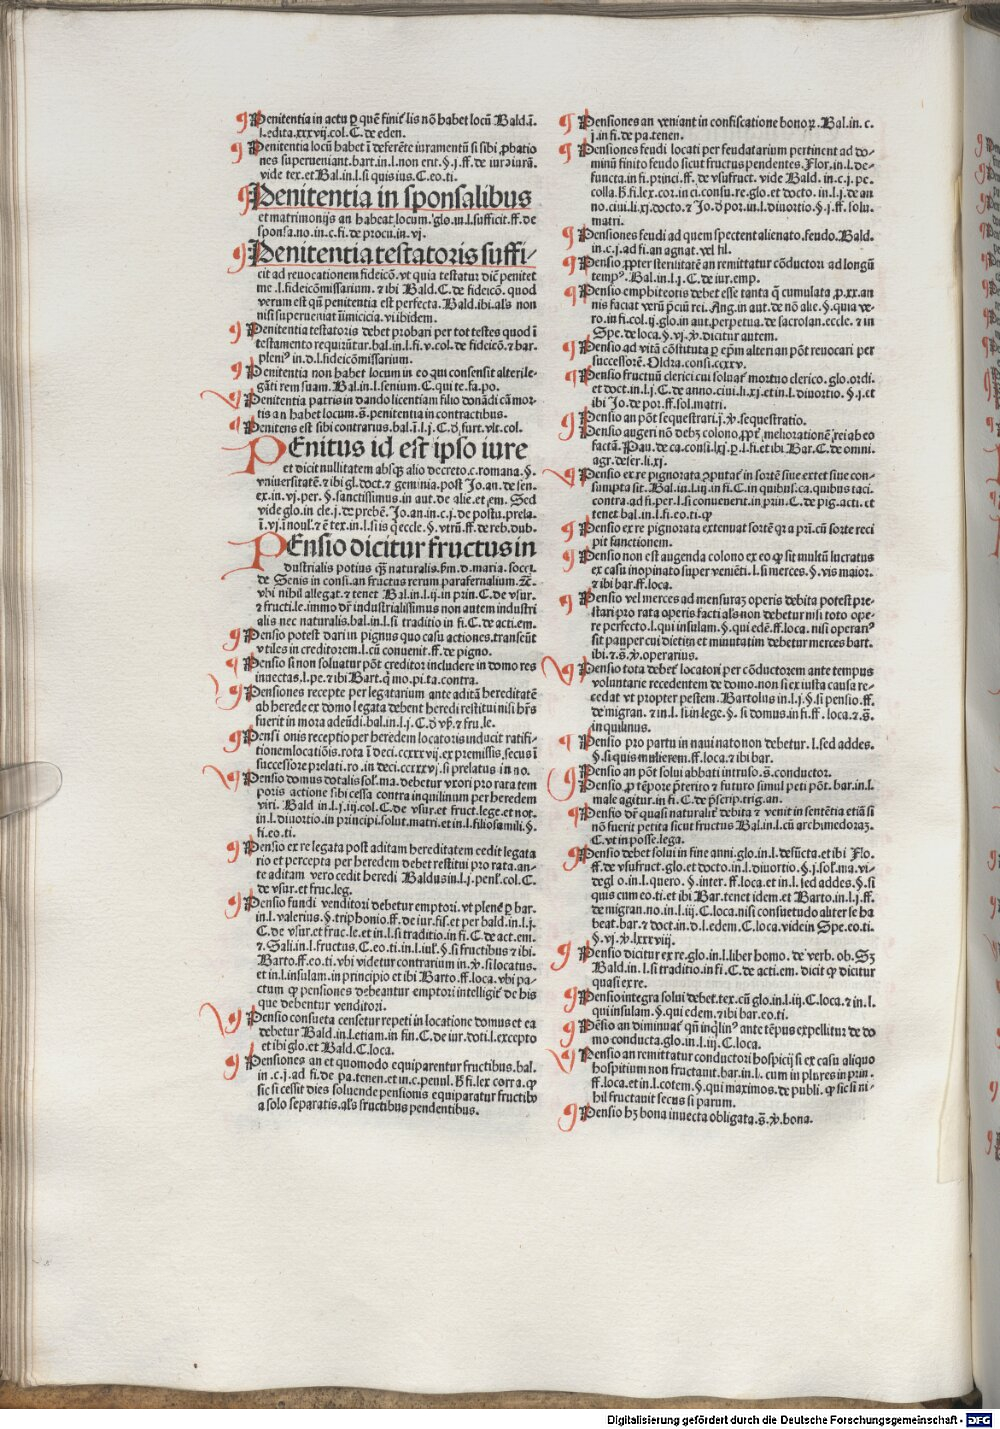 Penitentia in actu ꝑ quē finit᷑ lis nō habet locū Bald.ī.
l.edita.xxxvij.col.C.de eden.
Penitentia locū habet ī deferēte iuramentū si sibi ꝓbatio
nes superueniant.bart.in.l.non erit.§.j.ff.de iureiurā.
vide tex.et Bal.in.l.si quis ius.C.eo.ti.
Penitentia in sponsalibus
et matrimonijs an habeat locum.glo.in.l.sufficit.ff.de
sponsa.no.in.c.fi.de procu.in.vj.
Penitentia testatoris suffi-
cit ad reuocationem fideicō.vt quia testatur dicit penitet
me.l.fideicōmissarium.⁊ ibi Bald.C.de fideicō.quod
verum est qn̄ penitentia est perfecta.Bald.ibi.als non
nisi superueniat inimicicia.vi ibidem.
Penitentia testatoris debet probari per tot testes quod ī
testamento requirūtur.bal.in.l.fi.v.col.de fideicō.⁊ bar.
pleniꝰ in.d.l.fideicōmissarium.
Penitentia non habet locum in eo qui consensit alteri le-
gāti rem suam.Bal.in.l.senium.C.qui te.fa.po.
Penitentia patris in dando licentiam filio donādi cā mor-
tis an habet locum.s̄.penitentia in contractibus.
Penitens est sibi contrarius.bal.ī.l.j.C.ð furt.vlt.col.
PEnitus id est ipso iure
et dicit nullitatem absqꝫ alio decreto.c.romana.§.
vniuersitatē.⁊ ibi gl.doct.⁊ geminia.post Jo.an.de sen.
ex.in.vj.per.§.sanctissimus.in aut.de alie.et em. Sed
vide glo.in cle.j.de prebē. Jo.an.in.c.j.de postu.prela.
ī.vj.ī nouł.⁊ ē tex.in.l.si is q̄ eccle.§.vtrū.ff.de reb.dub.
PEnsio dicitur fructus in
dustrialis potius qꝫ naturalis.hm̄.d.maria.socci.
de Senis in consi.an fructus rerum parafernalium.⁊c̄.
vbi nibil allegat.⁊ tenet Bal.in.l.ij.in prin.C.de vsur.
⁊ fructi.le.immo dr̄ industrialissimus non autem industri
alis nec naturalis.bal.in.l.si traditio in fi.C.de acti.em.
Pensio potest dari in pignus quo casu actiones.transeūt
vtiles in creditorem.l.cū conuenit.ff.de pigno.
Pensio si non soluatur pōt creditor includere in domo res
inuectas.l.pe.⁊ ibi Bart.q̄ mo.pi.ta.contra.
Pensiones recepte per legatarium ante aditā hereditatē
ab herede ex domo legata debent heredi restitui nisi heres
fuerit in mora adeūdi.bal.in.l.j.C.ð vs̄.⁊ fru.le.
Pensi onis receptio per heredem locatoris inducit ratifi-
tionem locatiōis.rota ī deci.ccxxxvij.ex premissis.secus ī
successore prelati.ro.in deci.ccxxxvj.si prelatus in no.
Pensio domus dotalis soł.ma.debetur vxori pro rata tem
poris actione sibi cessa contra inquilinum per heredem
viri. Bald in.l.j.iij.col.C.de vsur.et fruct.lege.et not.
in.l.diuortio.in principi.solut.matri.et in.l.filiosamili.§.
fi.eo.ti.
Pensio ex re legata post aditam hereditatem cedit legata
rio et percepta per heredem debet restitui pro rata.an-
te aditam vero cedit heredi Baldus in.l.j.penł.col.C.
de vsur.et fruc.leg.
Pensio fundi venditori debetur emptori.vt plene ꝑ bar.
in.l.valerius.§.triphonio.ff.de iur.fis̄.et per bald.in.l.j.
C.de vsur.et fruc.le.et in.l.si traditio.in fi.C.de act.em.
⁊.Sali.in.l.fructus.C.eo.ti.in.l.iuł.§.si fructibus ⁊ ibi.
Barto.ff.eo.ti.vbi videtur contrarium in.ꝟ.si locatus.
et in.l.insulam.in principio et ibi Barto.ff.loca.vbi pa-
ctum ꝙ pensiones debeantur emptori intelligit᷑ de his
que debentur venditori.
Pensio consueta censetur repeti in locatione domus et ea
debetur Bald.in.l.etiam.in fin.C.de iur.doti.l.excepto
et ibi glo.et Bald.C.loca.
Pensiones an et quomodo equiparentur fructibus.bal.
in .c.j.ad fi.de pa.tenen.et in.c.penul.h̄.fi.lex corra.ꝙ
sic si cessit dies soluende pensionis equiparatur fructibꝰ
a solo separatis.als fructibus pendentibus.
Pensiones an veniant in confiscatione bonoꝝ.Bal.in.c.
j.in fi.de pa.tenen.
Pensiones feudi locati per feudatarium pertinent ad do-
minū finito feudo sicut fructus pendentes.Flor.in.l.de-
functa.in fi.princi.ff.de vsufruct.vide Bald.in.c.j.pe.
colla.h̄.fi.lex.cor.in ci.consu.re.glo.et docto.in.l.j.de an
no.ciui.li.xj.docto.⁊ Jo.ð por.in.l.diuortio.§.j.ff.solu.
matri.
Pensiones feudi ad quem spectent alienato.feudo.Bald.
in.c.j.ad fi.an agnat.vel fil.
Pensio ꝓpter sterilitatē an remittatur cōductori ad longū
tempꝰ.Bal.in.l.j.C.de iur.emp.
Pensio emphiteotis debet esse tanta ꝙ cumulata ꝓ.xx.an
nis faciat verū p̄ciū rei.Ang.in aut.de nō alie.§.quia ve-
ro.in fi.col.ij.glo.in aut.perpetua.de sacrosan.eccle.⁊ in
Spe.de loca.§.vj.ꝟ.dicitur autem.
Pensio ad vitā cōstituta ꝑ ep̄m alteri an pōt reuocari per
successorē.Oldra.consi.ccxxv.
Pensio fructuū clerici cui soluat᷑ mortuo clerico.glo.ordi.
et doct.in.l.j.C.de anno.ciui.li.xj.et in.l.diuortio.§.j.et
ibi Jo.de por.ff.sol.matri.
Pensio an pōt sequestrari.j.ꝟ.sequestratio.
Pensio augeri nō debꝫ colono.ꝓpt᷑ meliorationē rei ab eo
factā. Pau.de ca.consi.lxj.ꝑ.l.fi.et ibi Bar.C.de omni.
agr.deser.li.xj.
Pensio ex re pignorata ꝯputat᷑ in sortē siue extet siue con-
sumpta sit.Bal.in.l.iij.in fi.C.in quibus.ca.quibus taci.
contra.ad fi.per.l.si conuenerit.in prin.C.de pig.acti.et
tenet bal.in.l.fi.eo.ti.ꝙ
Pensio ex re pignorata extenuat sortē qr a pri.cū sorte reci
pit functionem.
Pensio non est augenda colono ex eo ꝙ sit multū lucratus
ex casu inopinato super veniēti.l.si merces.§.vis maior.
⁊ ibi bar.ff.loca.
Pensio vel merces ad mensuraꝫ operis debita potest pre-
stari pro rata operis facti als non debetur nisi toto ope-
re perfecto.l.qui insulam.§.qui edē.ff.loca.nisi operariꝰ
sit pauper cui dietim et minutatim debetur merces bart.
ibi.⁊.s̄.ꝟ.operarius.
Pensio tota debet᷑ locatori per cōductorem ante tempus
voluntarie recedentem de domo.non si ex iusta causa re-
cedat vt propter pestem.Bartolus in.l.j.§.si pensio.ff.
de migran.⁊ in.l.si in lege.§.si domus.in fi.ff.loca.⁊.s̄.
inquilinus.
Pensio pro partu in naui nato non debetur.l.sed addes.
§.si quis mulierem.ff.loca.⁊ ibi bar.
Pensio an pōt solui abbati intruso.s̄.conductor.
Pensio ꝓ tēpore p̄terito ⁊ futuro simul peti pōt.bar.in.l.
male agitur.in fi.C.de p̄scrip.trig.an.
Pensio dr̄ quasi naturalit᷑ debita ⁊ venit in sentētia etiā si
nō fuerit petita sicut fructus Bal.in.l.cū archimedoraꝫ.
C.vt in posse.lega.
Pensio debet solui in fine anni.glo.in.l.defūcta.et ibi Flo.
ff.de vsufruct.glo.et docto.in.l.diuortio.§.j.soł.ma.vi-
de gl o.in.l.quero.§.inter.ff.loca.et in.l.sed addes.§.si
quis cum eo.ti.et ibi Bar.tenet idem.et Barto.in.l.j.ff.
de migran.no.in.l.iij.C.loca.nisi consuetudo aliter se ha
beat.bar.⁊ doct.in.d.l.edem.C.loca.vide in Spe.eo.ti.
§.vj.ꝟ.lxxxviij.
Pensio dicitur ex re.glo.in.l.liber homo.de verb.ob.Sꝫ
Bald.in.l.si traditio.in fi.C.de acti.em.dicit ꝙ dicitur
quasi ex re.
Pensio integra solui debet.tex.cū glo.in.l.iij.C.loca.⁊ in.l.
qui insulam.§.qui edem.⁊ ibi bar.eo.ti.
Pēsio an diminuat᷑ qn̄ inqlinꝰ ante tēpus expellitur de do
mo conducta.glo.in.l.iij.C.loca.
Pensio an remittatur conductori hospicij si ex casu aliquo
hospitium non fructauit.bar.in.l.cum in plures in prin.
ff.loca.et in.l.cotem.§.qui maximos.de publi.ꝙ sic si ni-
hil fructauit secus si parum.
Pensio hꝫ bona inuecta obligata.s̄.ꝟ.bona.
Digitalisierung gefördert durch die Deutsche Forschungsgemeinschaft - DFG